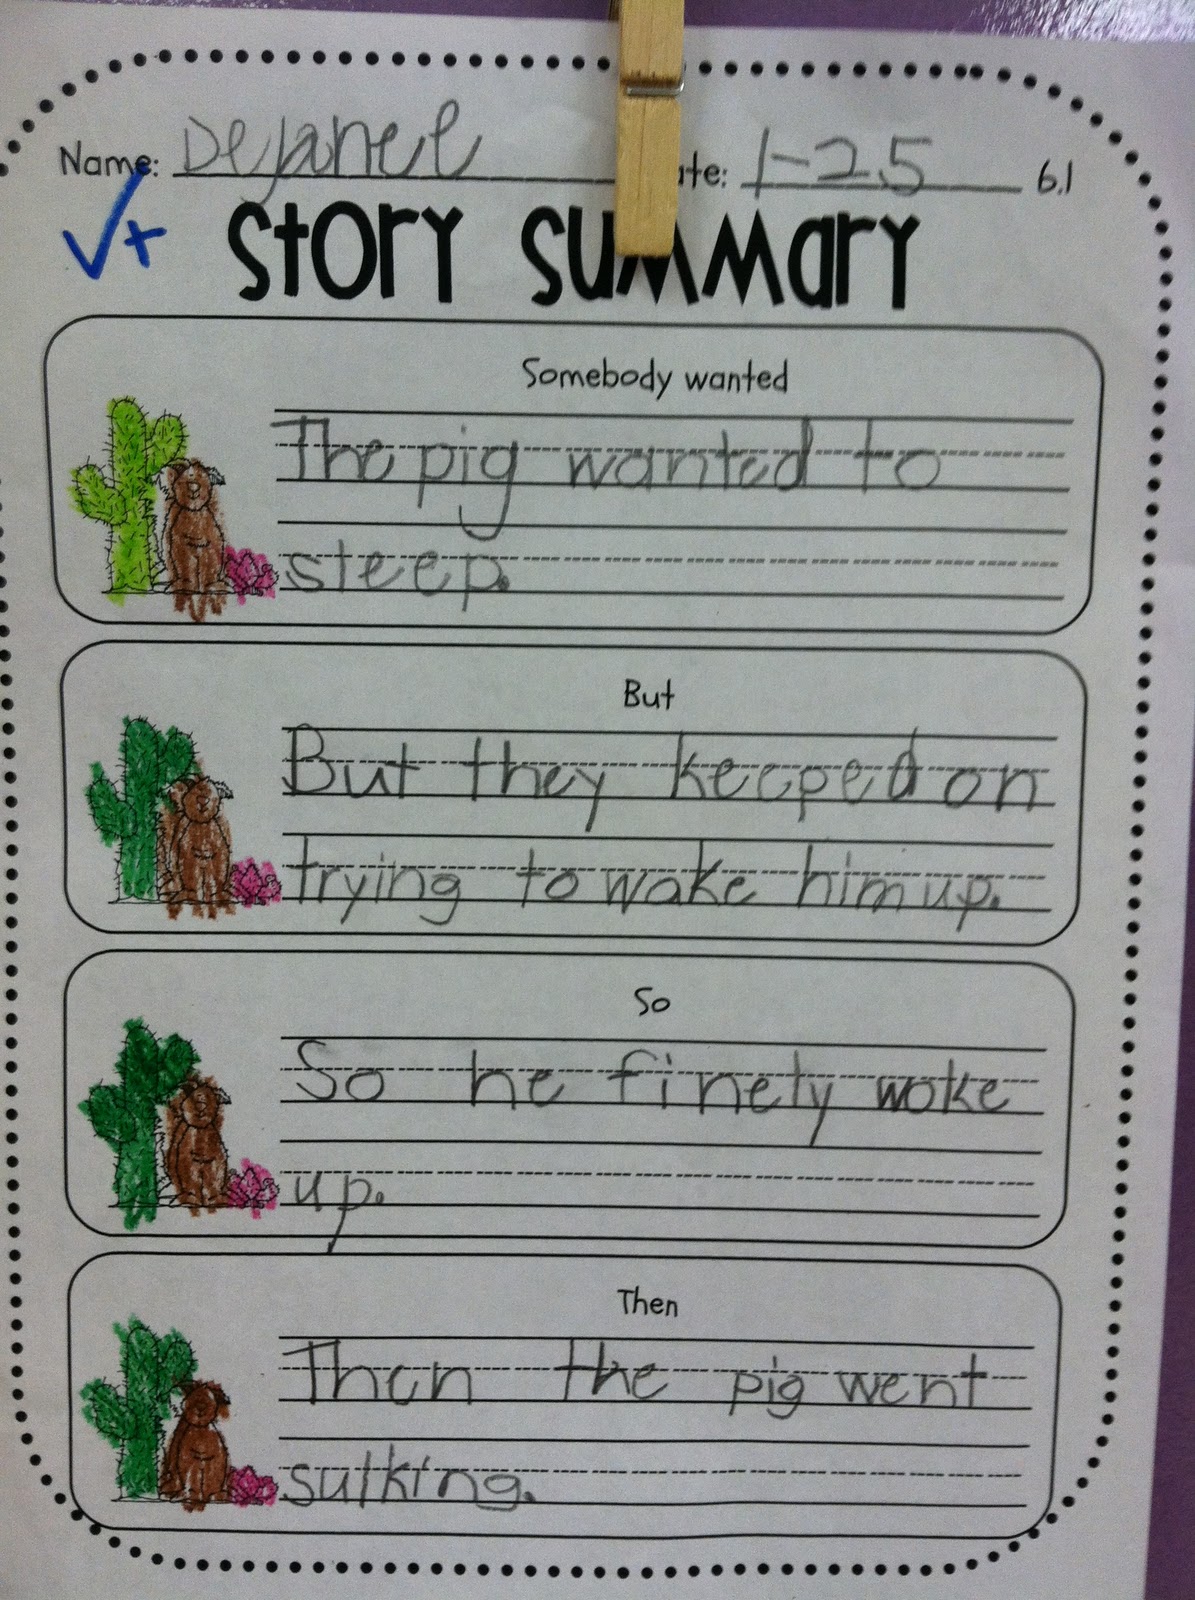 Name: Dejanee ate: 1-25 6.1
√+
Story Summary
Somebody wanted
The pig wanted to
sleep.
But
But they keeped on
trying to wake him up.
So
So he finely woke
up.
Then
Then the pig went
sulking.